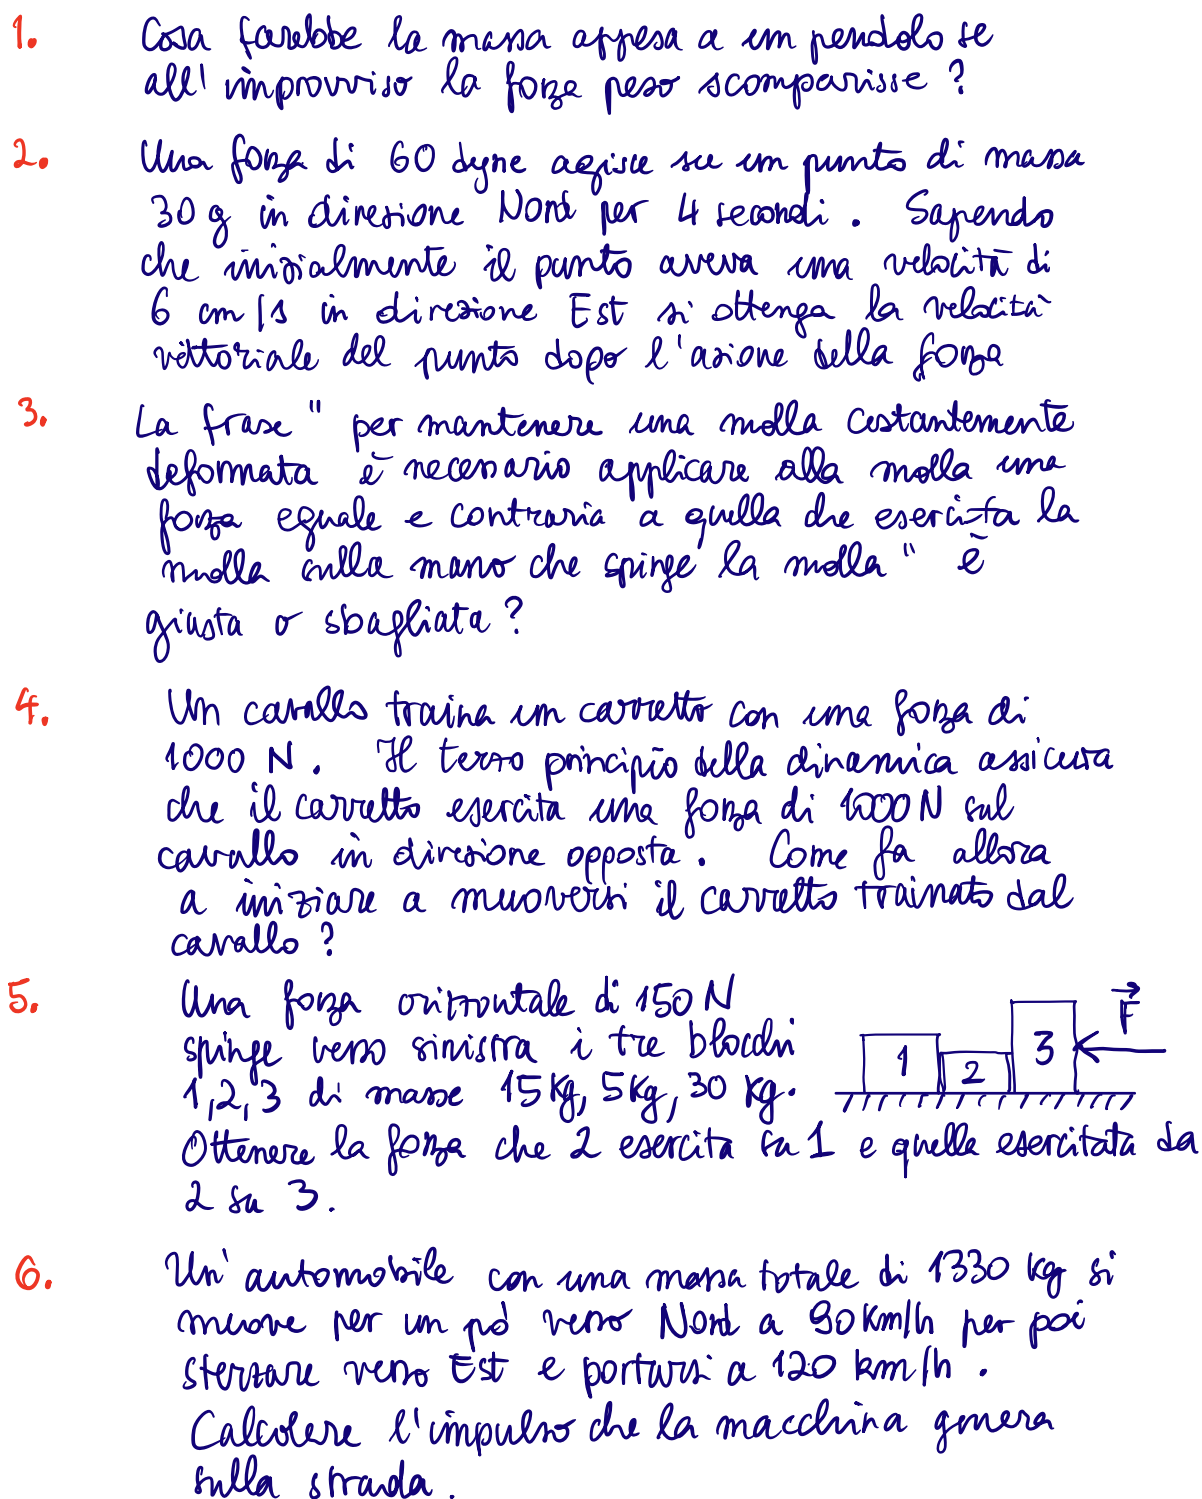 1. Cosa farebbe la massa appesa a un pendolo se
all'improvviso la forza peso scomparisse ?
2. Una forza di 60 dyne agisce su un punto di massa
30 g in direzione Nord per 4 secondi . Sapendo
che inizialmente il punto aveva una velocità di
6 cm/s in direzione Est si ottenga la velocità
vettoriale del punto dopo l'azione della forza
3. La frase " per mantenere una molla costantemente
deformata è necessario applicare alla molla una
forza eguale e contraria a quella che esercita la
molla sulla mano che spinge la molla " è
giusta o sbagliata ?
4. Un cavallo traina un carretto con una forza di
1000 N . Il terzo principio della dinamica assicura
che il carretto esercita una forza di 1000 N sul
cavallo in direzione opposta . Come fa allora
a iniziare a muoversi il carretto trainato dal
cavallo ?
5. Una forza orizzontale di 150 N
spinge verso sinistra i tre blocchi
1, 2, 3 di masse 15 Kg, 5 Kg, 30 Kg.
Ottenere la forza che 2 esercita su 1 e quella esercitata da
2 su 3 .
1 2 3 F
6. Un'automobile con una massa totale di 1330 Kg si
muove per un pò verso Nord a 90 Km/h per poi
sterzare verso Est e portarsi a 120 km/h .
Calcolare l'impulso che la macchina genera
sulla strada .